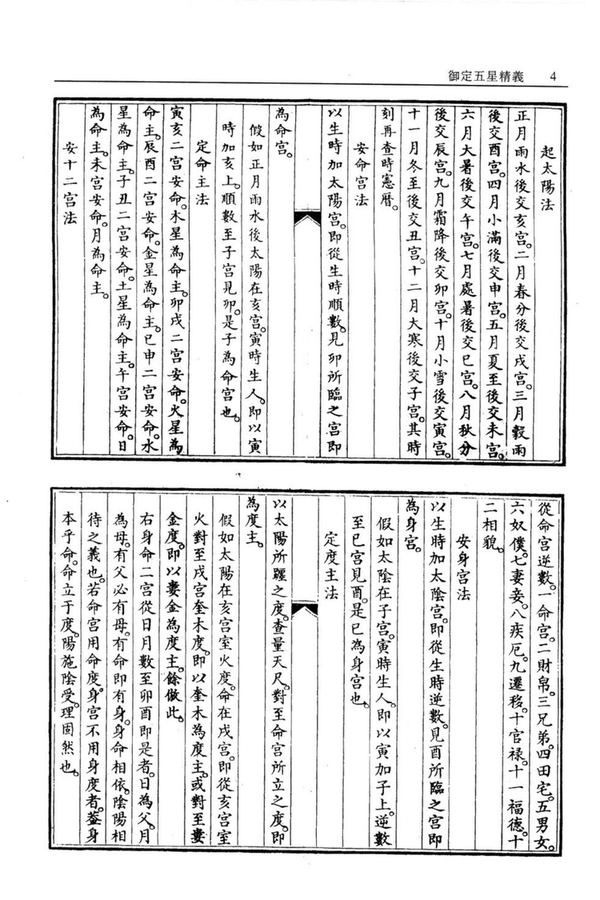 御定五星精義 4
起太陽法
正月雨水後交亥宫。二月春分後交戌宫。三月穀雨
後交酉宫。四月小滿後交申宫。五月夏至後交未宫。
六月大暑後交午宫。七月處暑後交巳宫。八月秋分
後交辰宫。九月霜降後交卯宫。十月小雪後交寅宫。
十一月冬至後交丑宫。十二月大寒後交子宫。其時
刻再查時憲曆。
安命宫法
以生時加太陽宫。即從生時順數。見卯所臨之宫即
為命宫。
假如正月雨水後太陽在亥宫。寅時生人。即以寅
時加亥上。順數至子宫見卯。是子為命宫也。
定命主法
寅亥二宫安命。木星為命主。卯戌二宫安命。火星為
命主。辰酉二宫安命。金星為命主。巳申二宫安命。水
星為命主。子丑二宫安命。土星為命主。午宫安命。日
為命主。未宫安命。月為命主。
安十二宫法
從命宫逆數。一命宫。二財帛。三兄弟。四田宅。五男女。
六奴僕。七妻妾。八疾厄。九遷移。十官禄。十一福德。十
二相貌。
安身宫法
以生時加太陰宫。即從生時逆數。見酉所臨之宫即
為身宫。
假如太陰在子宫。寅時生人。即以寅加子上。逆數
至巳宫見酉。是巳為身宫也。
定度主法
以太陽所躔之度。查量天尺。對至命宫所立之度。即
為度主。
假如太陽在亥宫室火度。命在戌宫。即從亥宫室
火對至戌宫奎木度。即以奎木為度主。或對至婁
金度。即以婁金為度主。餘倣此。
右身命二宫從日月數至卯酉即是者。日為父。月
為母。有父必有母。有命即有身。身命相依。陰陽相
待之義也。若命宫用命度。身宫不用身度者。葢身
本乎命。命立于度。陽施陰受。理固然也。